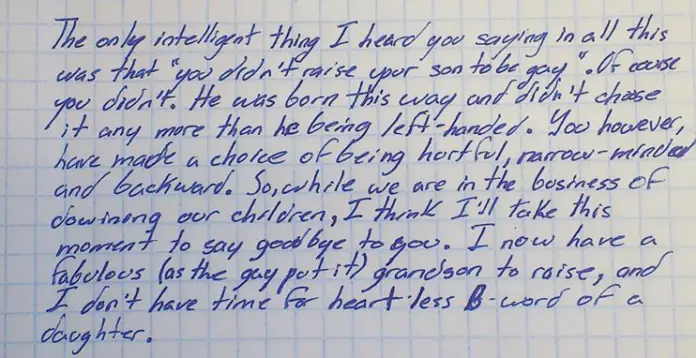 The only intelligent thing I heard you saying in all this
was that "you didn't raise your son to be gay". Of course
you didn't. He was born this way and didn't choose
it any more than he being left-handed. You however,
have made a choice of being hortful, narrow-minded
and backward. So, while we are in the business of
dowinong our children, I think I'll take this
moment to say goodbye to you. I now have a
fabulous (as the gay put it) grandson to raise, and
I don't have time for heart-less B-word of a
daughter.